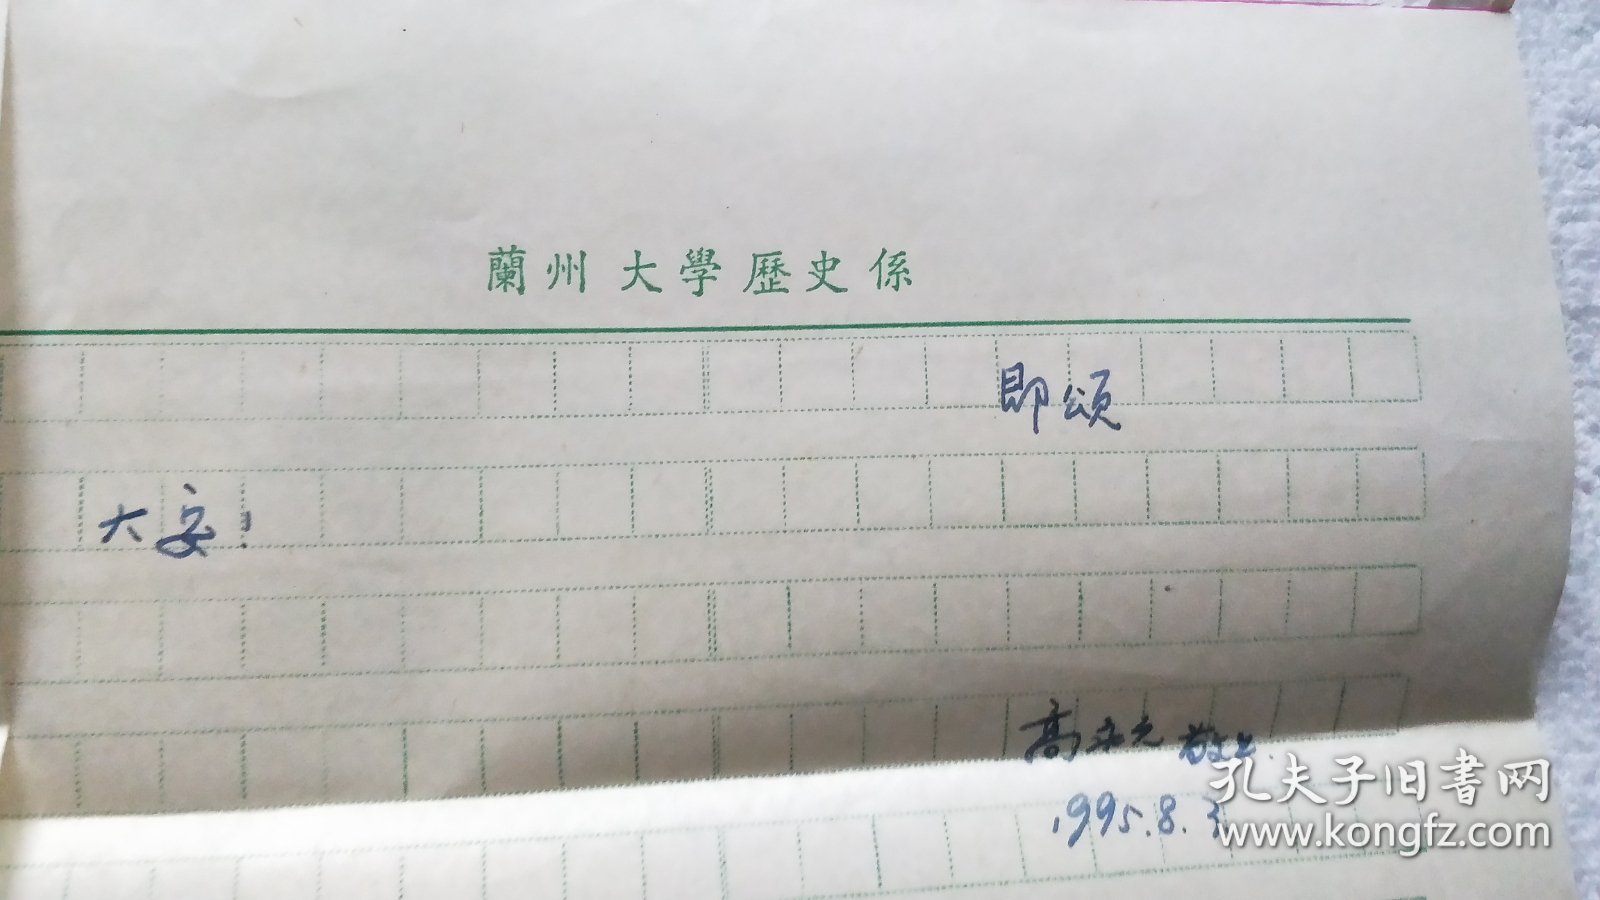 蘭州大學歷史係
即頌
大安!
高永久 敬上
孔夫子旧書网
1995.8.3
www.kongfz.com